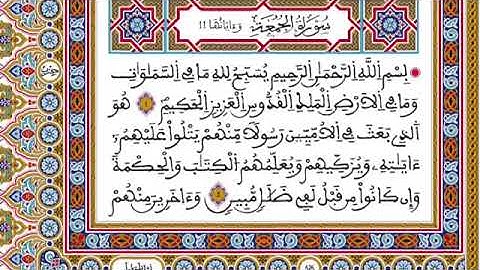 سُورَةُ الْجُمُعَةِ وَءَايَاتُهَا 11
بِسْمِ اِللَّهِ اِلرَّحْمَٰنِ اِلرَّحِيمِ يُسَبِّحُ لِلهِ مَا فِي اِلسَّمَٰوَٰتِ
وَمَا فِي اِلْأَرْضِ اِلْمَلِكِ اِلْقُدُّوسِ اِلْعَزِيزِ اِلْحَكِيمِ هُوَ
اَلَذِي بَعَثَ فِي اِلْأُمِّيِّينَ رَسُولًا مِّنْهُمْ يَتْلُواْ عَلَيْهِمُ
ءَايَٰتِهِۦ وَيُزَكِّيهِمْ وَيُعَلِّمُهُمُ اُلْكِتَٰبَ وَالْحِكْمَةَ
وَإِن كَانُواْ مِن قَبْلُ لَفِي ضَلَٰلٍ مُّبِينٍ وَءَاخَرِينَ مِنْهُمْ